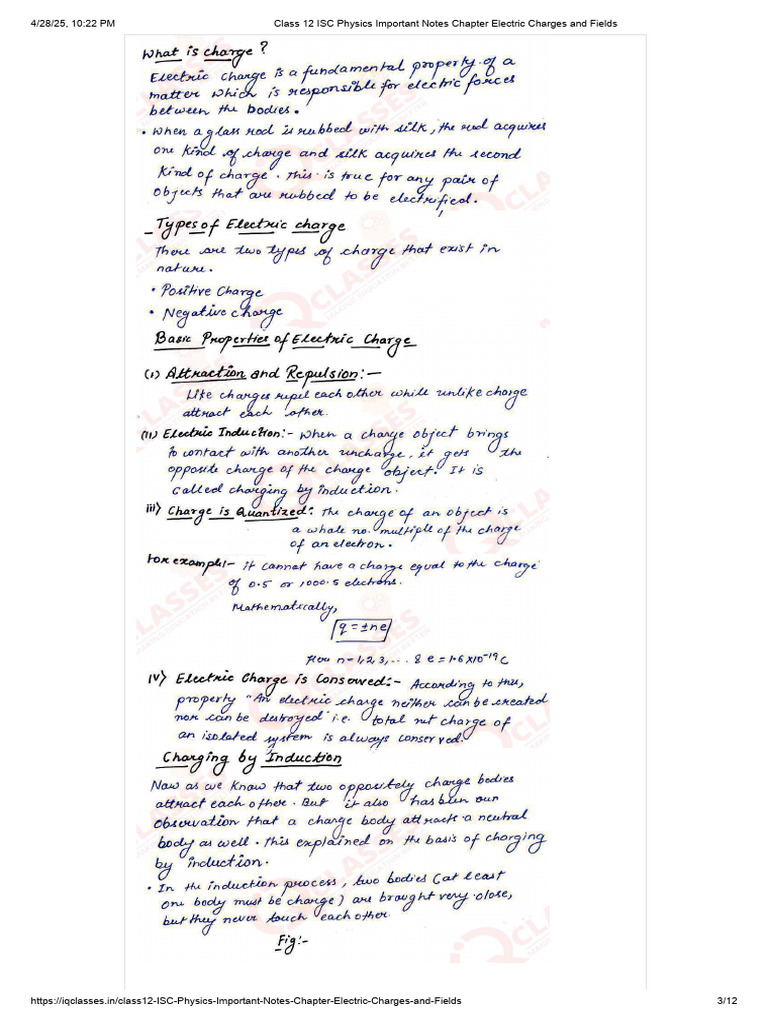 4/28/25, 10:22 PM Class 12 ISC Physics Important Notes Chapter Electric Charges and Fields
What is charge ?
Electric charge is a fundamental property of a
matter which is responsible for electric forces
between the bodies.
• When a glass rod is rubbed with silk, the rod acquires
one kind of charge and silk acquires the second
kind of charge. This is true for any pair of
objects that are rubbed to be electrified.
Types of Electric charge
There are two types of charge that exist in
nature.
• Positive Charge
• Negative charge
Basic Properties of Electric Charge
(i) Attraction and Repulsion:-
Like charges repel each other while unlike charge
attract each other.
(ii) Electric Induction:- When a charge object brings
to contact with another uncharge, it gets the
opposite charge of the charge object. It is
called charging by induction.
iii) Charge is Quantized: The charge of an object is
a whole no. multiple of the charge
of an electron.
For example:- it cannot have a charge equal to the charge
of 0.5 or 1000.5 electrons.
Mathematically,
q = ±ne
For n=1,2,3,... & e = 1.6x10⁻¹⁹ C
iv) Electric Charge is Conserved:- According to this,
property "An electric charge neither can be created
nor can be destroyed" i.e. total net charge of
an isolated system is always conserved.
Charging by Induction
Now as we know that two oppositely charge bodies
attract each other. But it also has been our
observation that a charge body attracts a neutral
body as well. This explained on the basis of charging
by induction.
• In the induction process, two bodies (at least
one body must be charge) are brought very close,
but they never touch each other.
Fig:-
https://iqclasses.in/class12-ISC-Physics-Important-Notes-Chapter-Electric-Charges-and-Fields 3/12